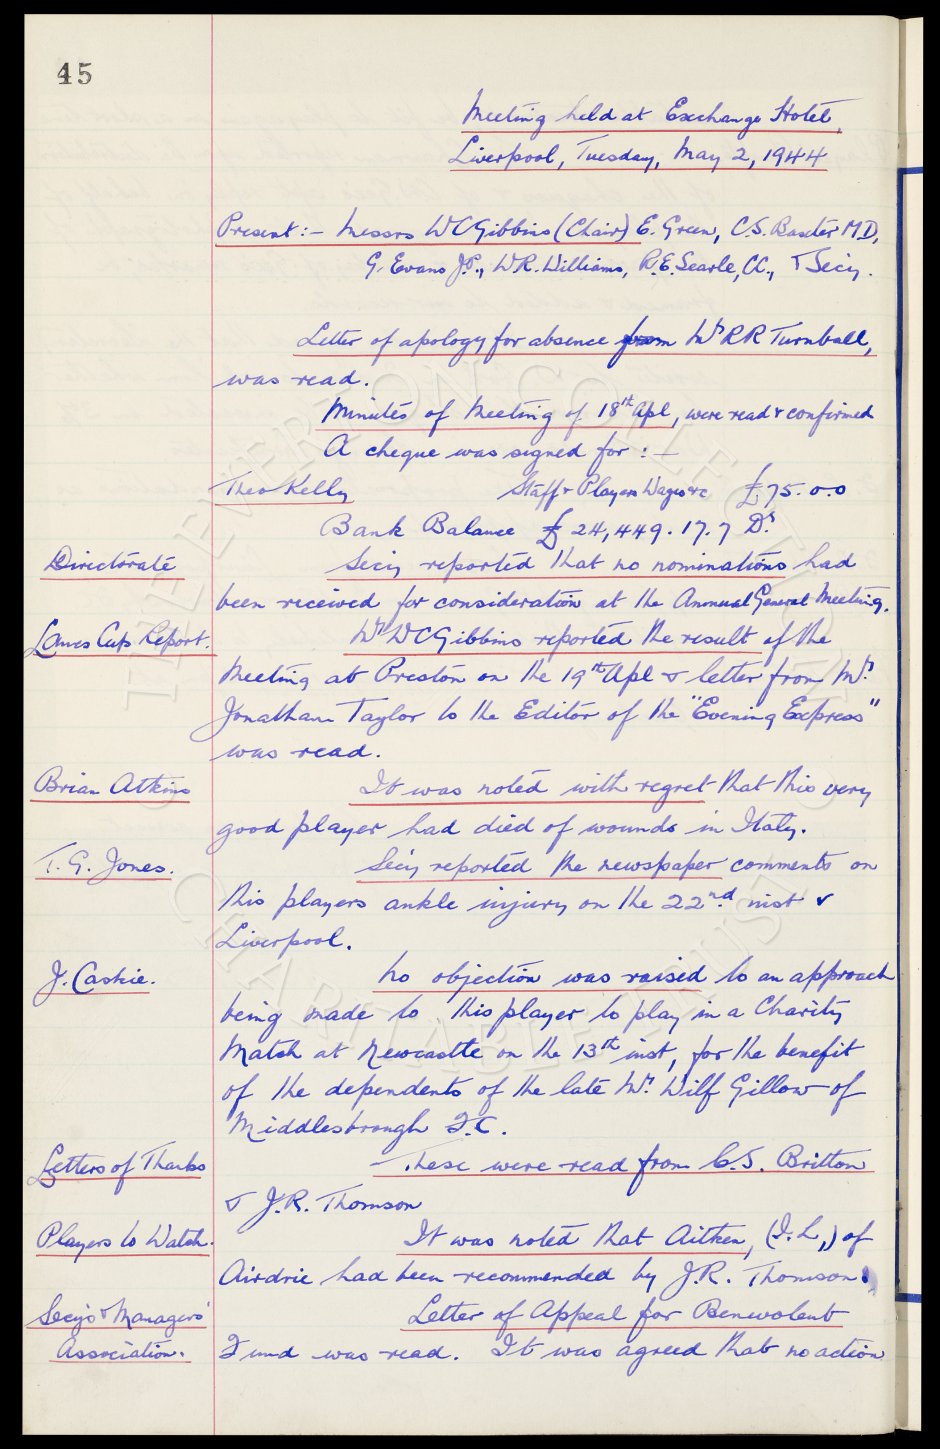 45
Meeting held at Exchange Hotel,
Liverpool, Tuesday, May 2, 1944
Present:- Messrs WCGibbins (Chair) E. Green, C.S. Baxter M.D,
G. Evans J.P., W.R. Williams, R.E. Searle, CC., & Secy.
Letter of apology for absence from Mr RR Turnball,
was read.
Minutes of Meeting of 18th Apl, were read & confirmed
A cheque was signed for :-
Theo Kelly Staff & Players Wages &c £75.0.0
Bank Balance £24,449.17.7 Dr.
Directorate Secy reported that no nominations had
been received for consideration at the Annual General Meeting.
Lancs Cup Report. Mr WCGibbins reported the result of the
Meeting at Preston on the 19th Apl & letter from Mr.
Jonathan Taylor to the Editor of the "Evening Express"
was read.
Brian Atkins It was noted with regret that this very
good player had died of wounds in Italy.
T. G. Jones. Secy reported the newspaper comments on
this players ankle injury on the 22nd inst v
Liverpool.
J. Caskie. No objection was raised to an approach
being made to this player to play in a Charity
Match at Newcastle on the 13th inst, for the benefit
of the dependents of the late Mr. Wilf Gillow of
Middlesbrough F.C.
Letters of Thanks These were read from C.S. Britton
& J.R. Thomson
Players to Watch. It was noted that Aitken, (I.L,) of
Airdrie had been recommended by J.R. Thomson.
Secy's & Managers' Letter of Appeal for Benevolent
Association. Fund was read. It was agreed that no action
THE EVERTON COLLECTION
CHARITABLE TRUST